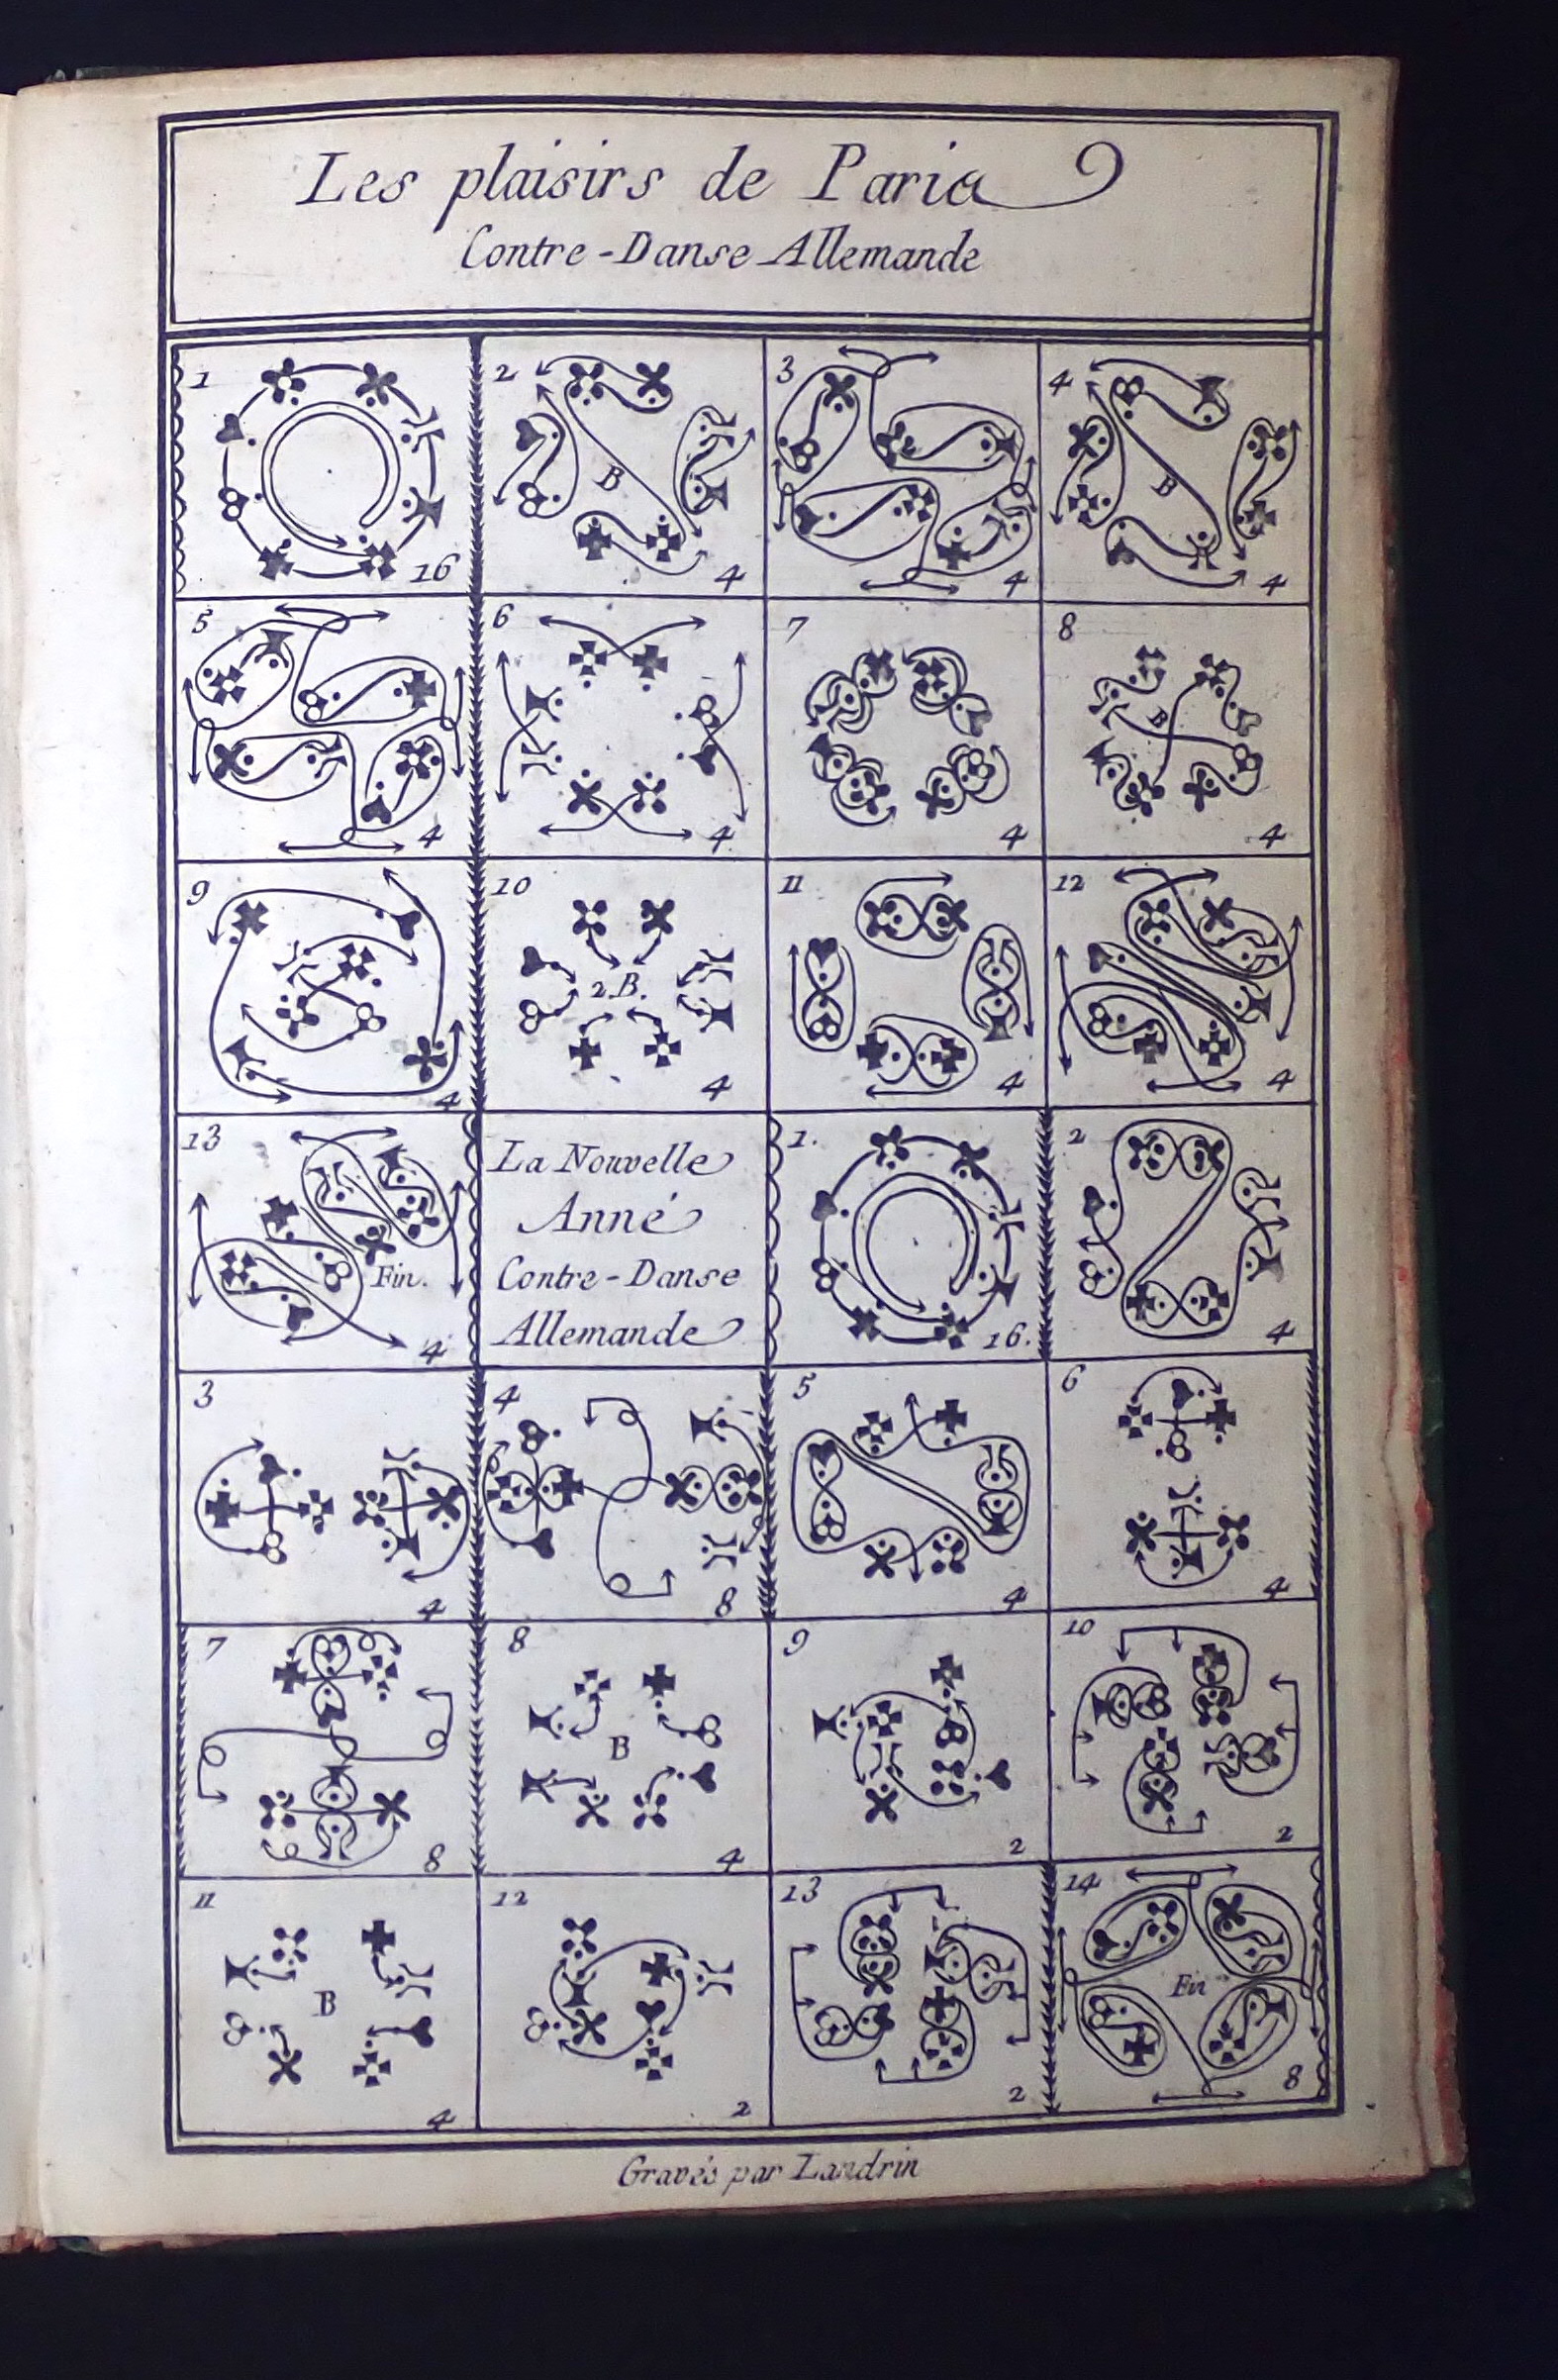 Les plaisirs de Paris
Contre-Danse Allemande
1
16
2
B
4
3
4
4
B
4
5
4
6
4
7
4
8
B
4
9
4
10
2 B.
4
11
4
12
4
13
Fin.
4
La Nouvelle
Anné
Contre-Danse
Allemande
1.
16.
2
4
3
4
4
8
5
4
6
4
7
8
8
B
4
9
2
10
2
11
B
4
12
2
13
2
14
Fin
8
Gravés par Landrin